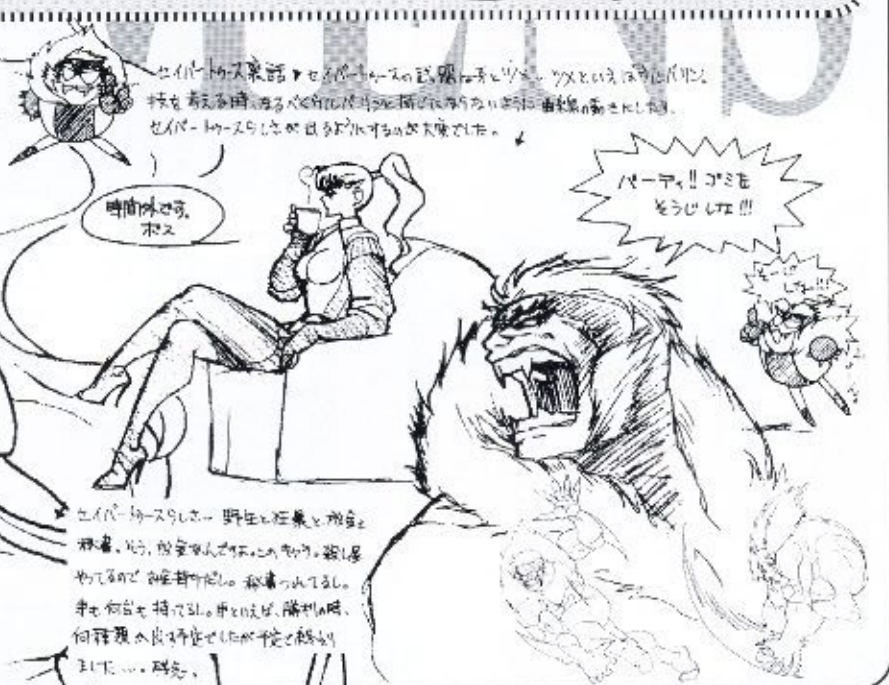 セイバートゥース裏話▼セイバートゥースの武器は牙とツメ… ツメといえばウルバリン。
技を考える時、なるべくウルバリンと同じにならないように曲線の動きにしたり、
セイバートゥースらしさが出るようにするのが大変でした。
時間外です。
ボス
バーディ!!ゴミを
そうじしな!!!
そーじ
しな!!!
セイバートゥースらしさ… 野生と狂暴と お金と
秘書。そう、お金なんですよ。このキャラ。殺し屋
やってるので お金持ちだし。秘書つれてるし。
車も何台も持てるし。車といえば、勝利の時、
何種類か出す予定でしたが予定で終わり
ました…。